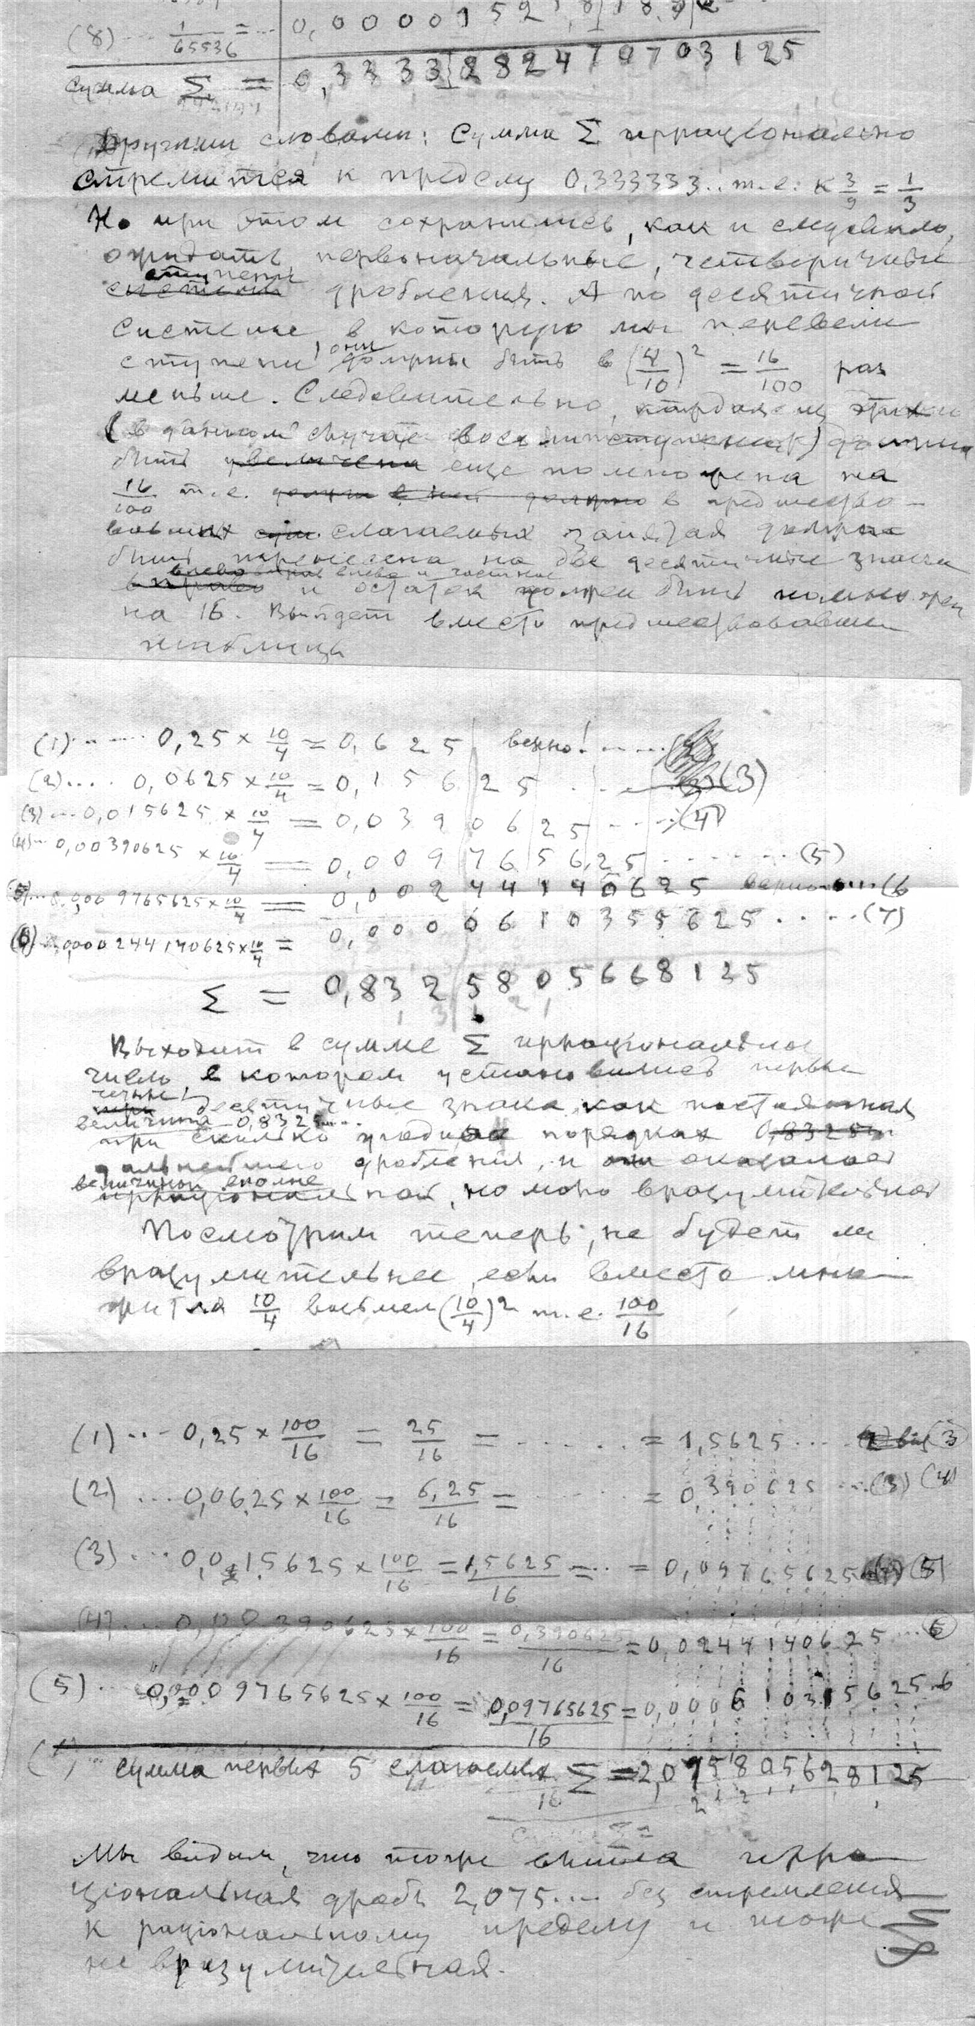 (8) ... 1/65536 = ... 0,00001525
сумма Σ = 0,3333282470703125
Другими словами: Сумма Σ иррационально
стремится к пределу 0,333333.. т.е. к 3/9 = 1/3
Но при этом сохранились, как и следовало,
ожидать первоначальные, четверичные
ступени
системы дробления. А по десятичной
системе, в которую мы перевели
ступени, они должны быть в (4/10)² = 16/100 раз
меньше. Следовательно, каждая из
(в данном случае восьми ступеней) должна
быть увеличена еще помножена на
16/100 т.е. в предшество-
вавших слагаемых запятая должна
быть перенесена на два десятичные знака
влево
вправо и остаток должен быть помножен
на 16. Выйдет вместо предшествовавшей
таблица
(1) ..... 0,25 × 10/4 = 0,625 верно! .....
(2) .... 0,0625 × 10/4 = 0,15625 .. (3)
(3) ... 0,015625 × 10/4 = 0,0390625 .... (4)
(4) .. 0,00390625 × 10/4 = 0,009765625 ....... (5)
(5) ... 0,0009765625 × 10/4 = 0,00244140625 ... (6
(6) .. 0,000244140625 × 10/4 = 0,00006103515625 ..... (7)
Σ = 0,8325805668125
Выходит в сумме Σ иррациональное
число, в котором установились первые
десятичные знака, как постоянная
величина 0,8325....
при сколько угодно порядках 0,8325
дальнейшего дробления, и оказалась
величиной вполне
иррациональной, но мало вразумительной
Посмотрим теперь, не будет ли
вразумительнее, если вместо мно-
жителя 10/4 возьмем (10/4)² т.е. 100/16
(1) ... 0,25 × 100/16 = 25/16 = ...... = 1,5625 .... (3
(2) ... 0,0625 × 100/16 = 6,25/16 = = 0,390625 ... (3) (4)
(3) ... 0,015625 × 100/16 = 1,5625/16 = ... = 0,09765625 (5)
(4) ... 0,00390625 × 100/16 = 0,390625/16 = 0,0244140625 ... 6
(5) .. 0,0009765625 × 100/16 = 0,09765625/16 = 0,0006103515625 .6
сумма первых 5 слагаемых Σ = 2,075805628125
Мы видим, что тоже вышла ирра-
циональная дробь 2,075.... без стремления
к рациональному пределу и тоже
не вразумительная.